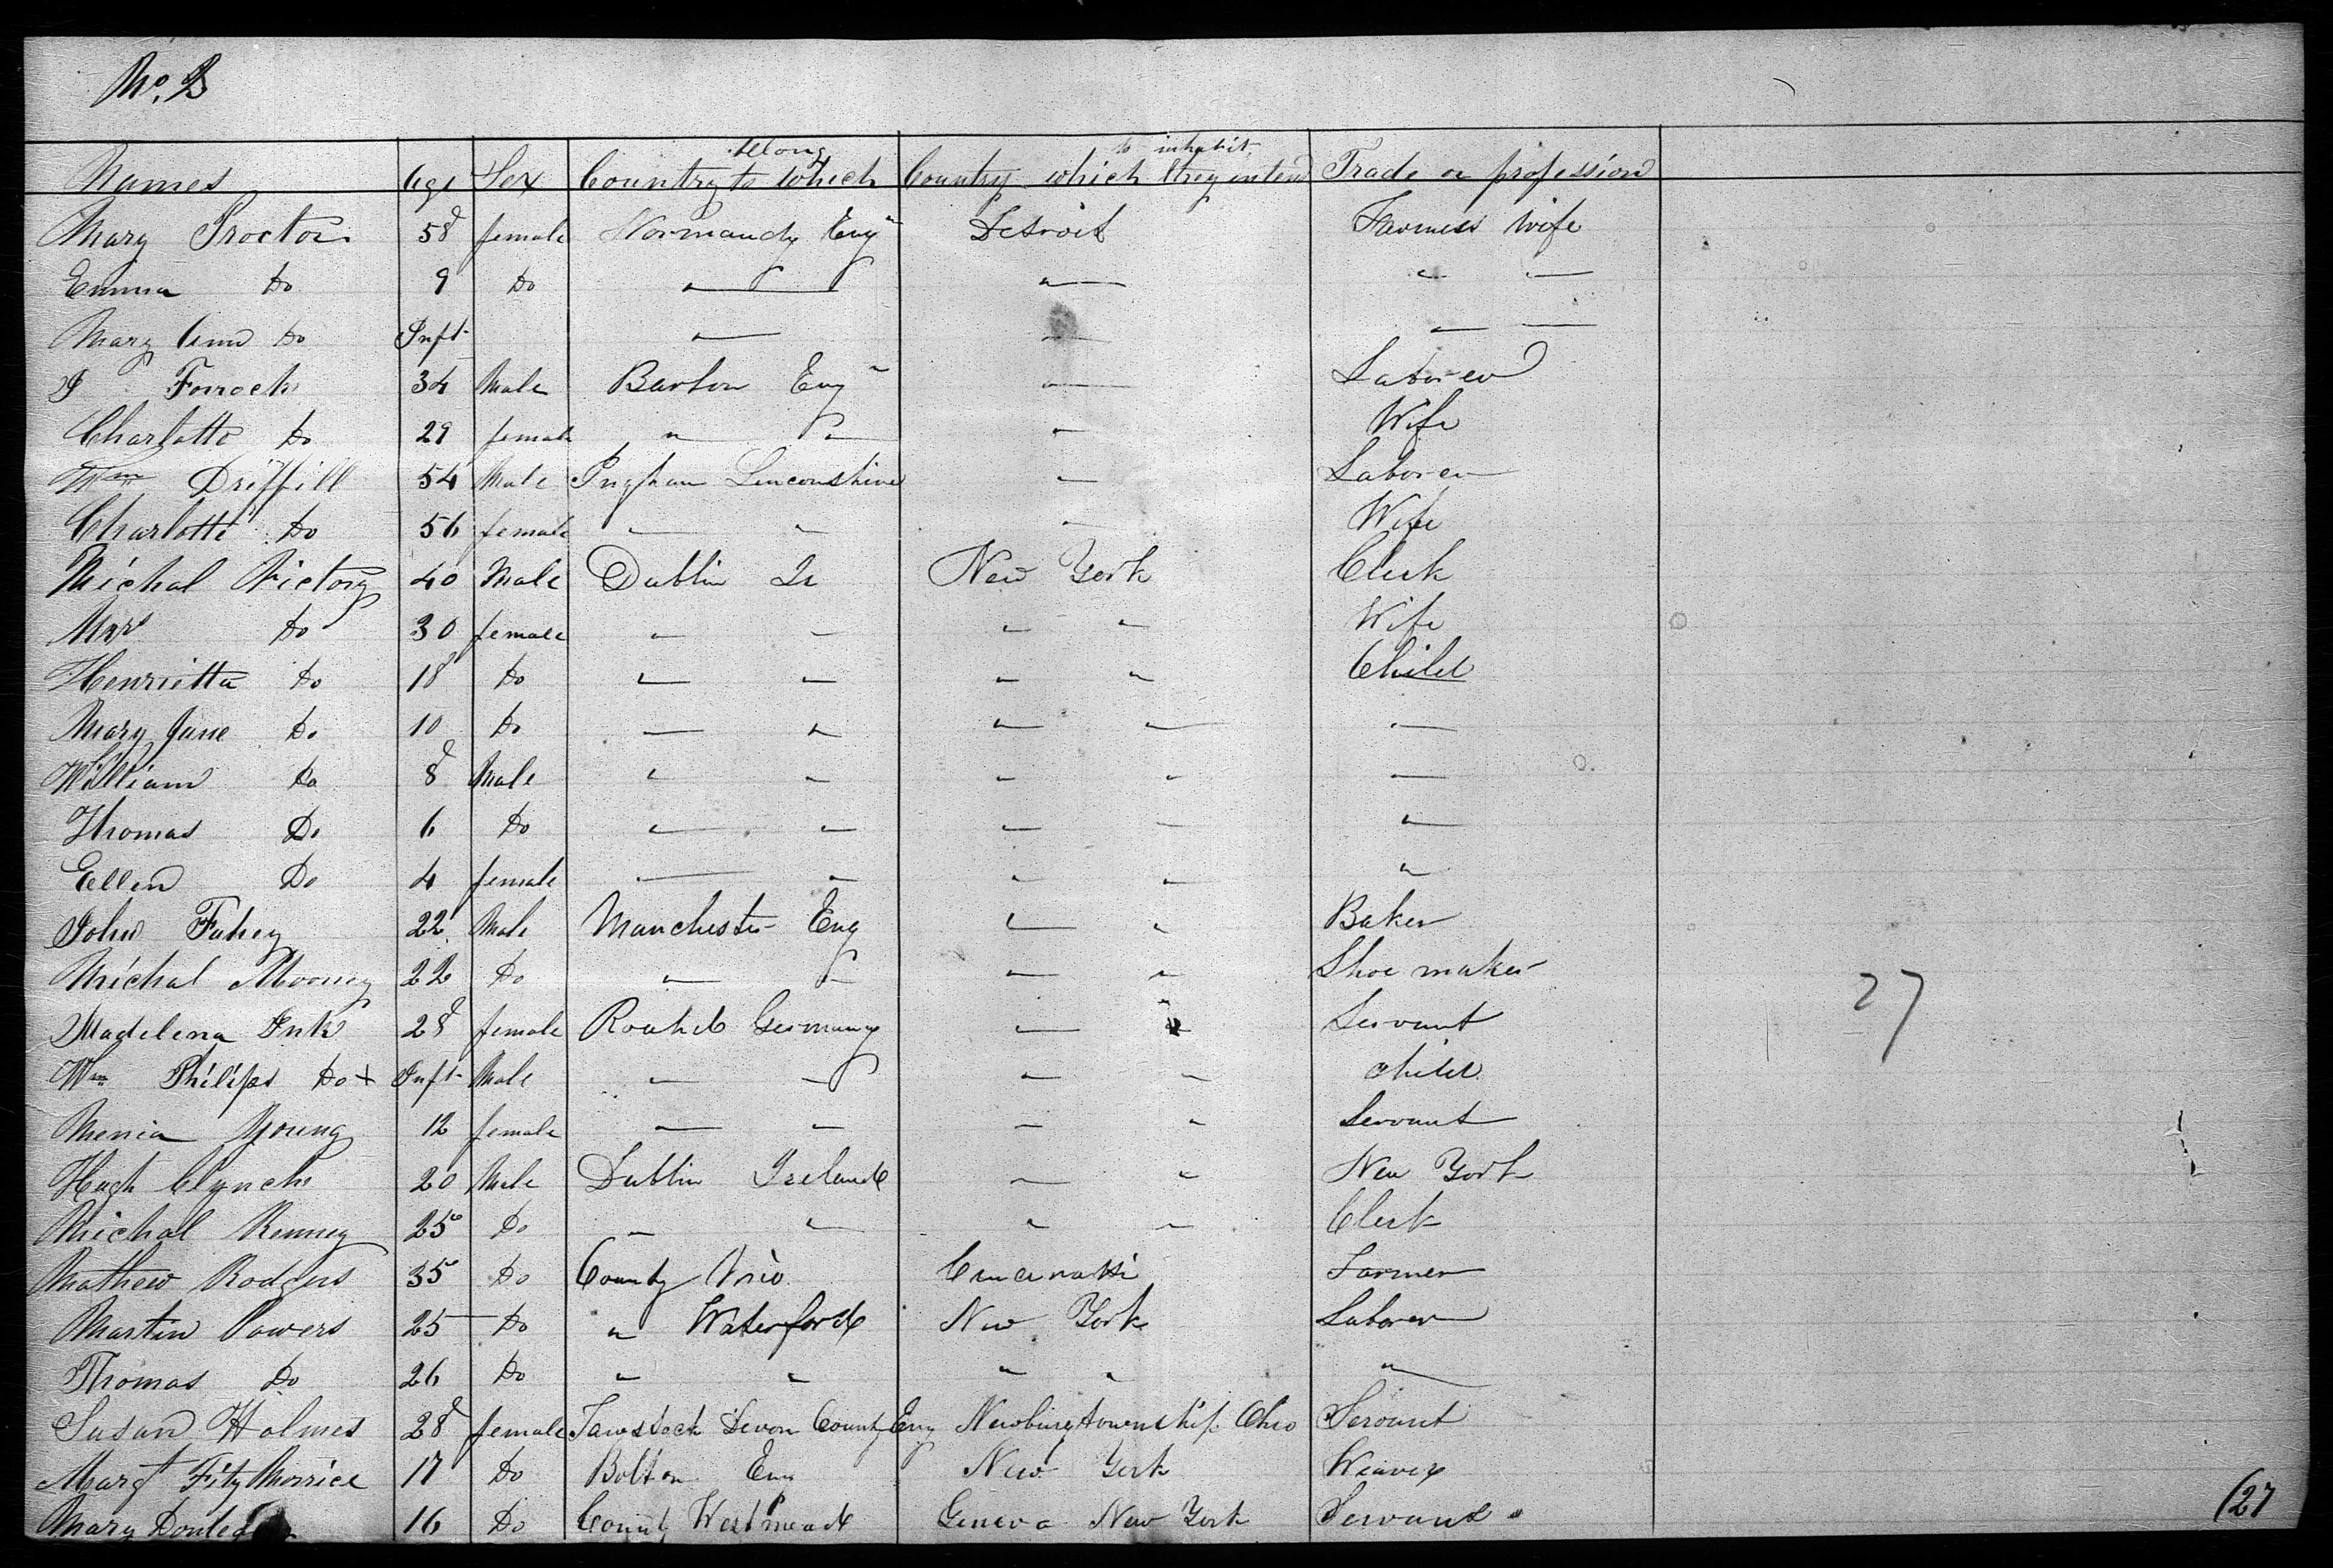 No. 2
Names Age Sex Country to which belong Country which they intend to inhabit Trade or profession
Mary Proctor 58 female Normandy Eng Detroit Farmers wife
Emma Do 9 Do " " " "
Mary Ann Do Inft " " " "
J 34 Male Barton Eng " Laborer
Charlotte Do 29 female " " " Wife
Wm Driffill 54 Male Ingham Linconshire " Laborer
Charlotte Do 56 female " " " Wife
Michal Victory 40 Male Dublin Ir New York Clerk
Mrs Do 30 female " " " " Wife
Henrietta Do 18 Do " " " " Child
Mary Jane Do 10 Do " " " " "
William Do 8 Male " " " " "
Thomas Do 6 Do " " " " "
Ellen Do 4 female " " " " "
John Fahey 22 Male Manchester Eng " " Baker
Michal Mooney 22 Do " " " " Shoe maker
Madelena Ink 28 female Germany " " Servant
Wm Philips Do + Inft Male " " " " child
Menia Young 12 female " " " " Servant
Hugh Clynch 20 Male Dublin Ireland " " New York
Michal Renney 25 Do " " " " Clerk
Mathew Rodgers 35 Do County Farmer
Martin Powers 25 Do " Waterford New York Laborer
Thomas Do 26 Do " " " " "
Susan Holmes 28 female Tawstock Devon County Eng Newburg township Ohio Servant
Margt FitzMorrice 17 Do Bolton Eng New York Weaver
Mary 16 Do County Westmead Geneva New York Servant
27
(27